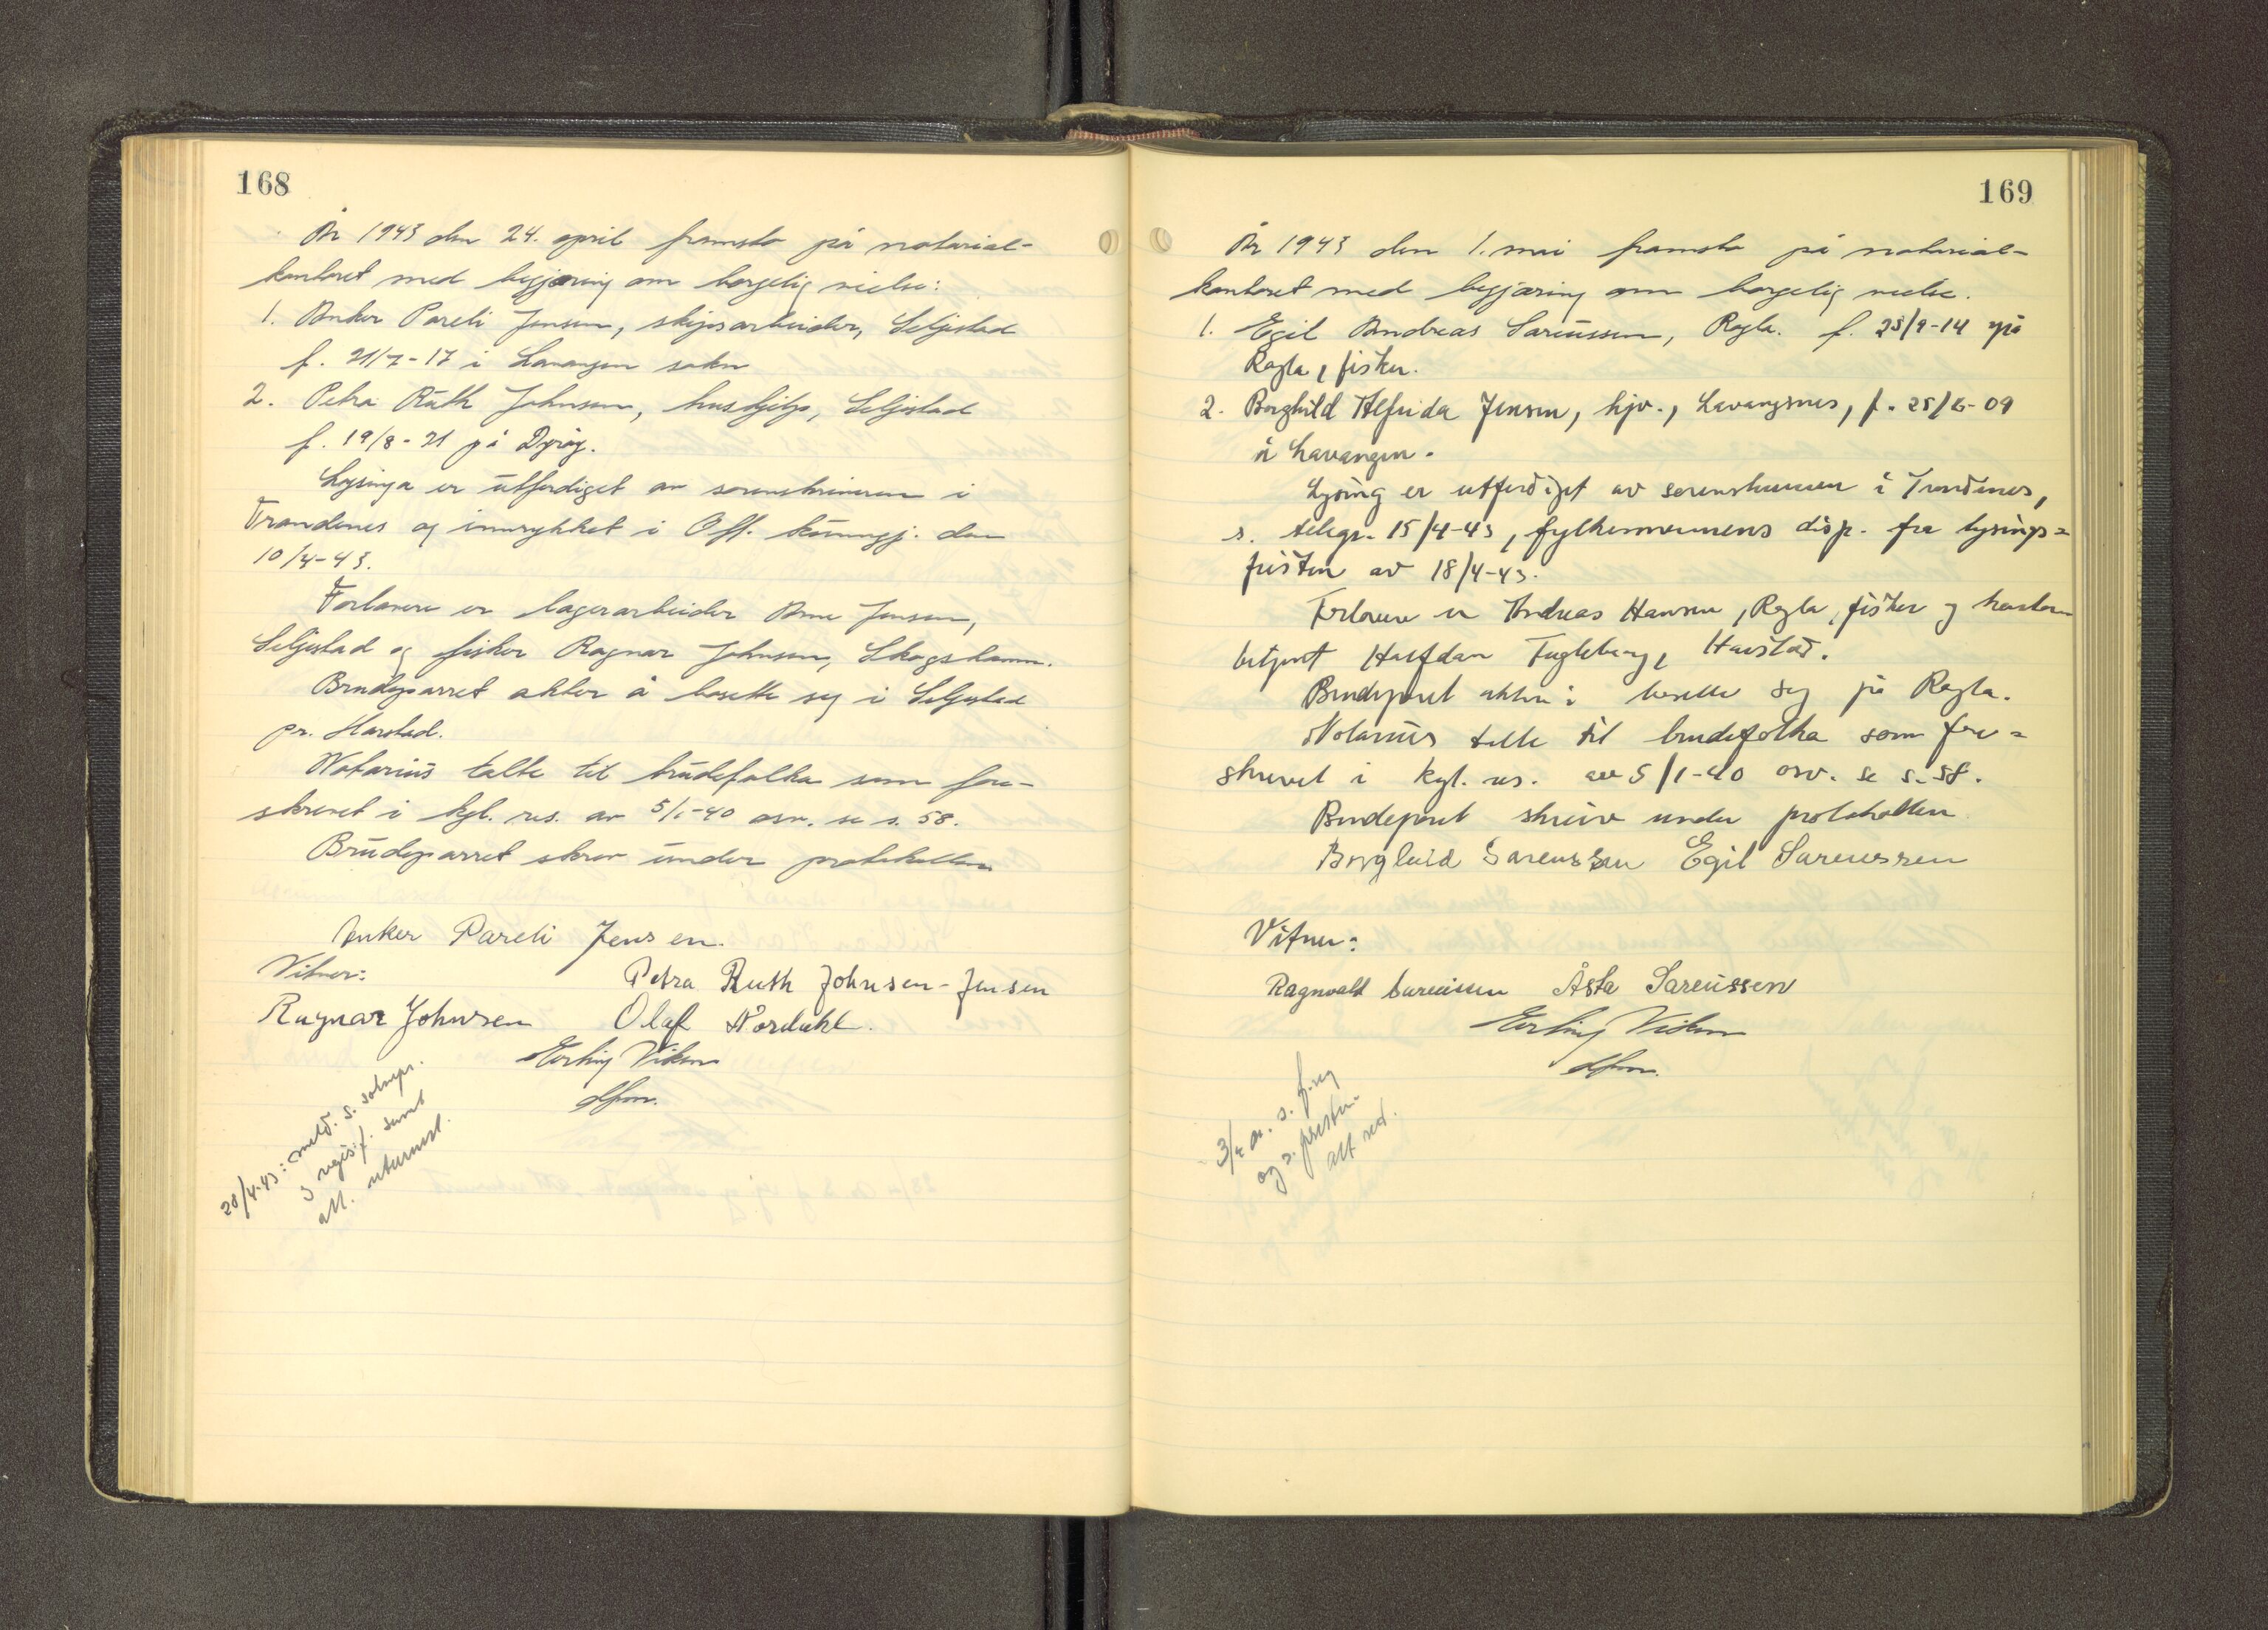 168
År 1943 den 24. april framsto på notarial-
kontoret med begjæring om borgelig vielse:
1. Anker Pareli Jensen, skipsarbeider, Seljestad
f. 21/7-17 i Lavangen sokn
2. Petra Ruth Johnsen, hushjelp, Seljestad
f. 19/8-21 på Dyrøy.
Lysinga er utferdiget av sorenskriveren i
Trondenes og innrykket i Off. kunngj. den
10/4-43.
Forlovere er lagerarbeider Arne Jensen,
Seljestad og fisker Ragnar Johnsen, Skogshamn.
Brudeparret akter å bosette seg i Seljestad
pr. Harstad.
Notarius talte til brudefolka som fore-
skrevet i kgl. res. av 5/1-40 osv. se s. 58.
Brudeparret skrev under protokollen
Anker Pareli Jensen.
Vitner:
Petra Ruth Johnsen-Jensen
Ragnar Johnsen Olaf Nordahl.
Erling Viken
dfm.
28/4-43: meld. s. soknepr.
og regisf. samt
att. utarmet.
169
År 1943 den 1. mai framsto på notarial-
kontoret med begjæring om borgelig vielse.
1. Egil Andreas Sareussen, Rogla. f. 23/9-14 på
Rogla, fisker.
2. Borghild Alfrida Jensen, hjv., Lavangsnes, f. 25/6-09
i Lavangen.
Lysing er utferdiget av sorenskriveren i Trondenes,
s. telegr. 15/4-43, fylkesmannens disp. fra lysings=
fristen av 18/4-43.
Forlovere er Andreas Hansen, Rogla, fisker og
betjent Halfdan Fugleberg, Harstad.
Brudeparet akter å bosette seg på Rogla.
Notarius talte til brudefolka som fore=
skrevet i kgl. res. av 5/1-40 osv. se s. 58.
Brudeparet skreiv under protokollen
Borghild Sareussen Egil Sareussen
Vitner:
Ragnvald Sareussen Åsta Sareussen
Erling Viken
dfm.
3/5 m. s. f.reg
og s. presten.
att sed.